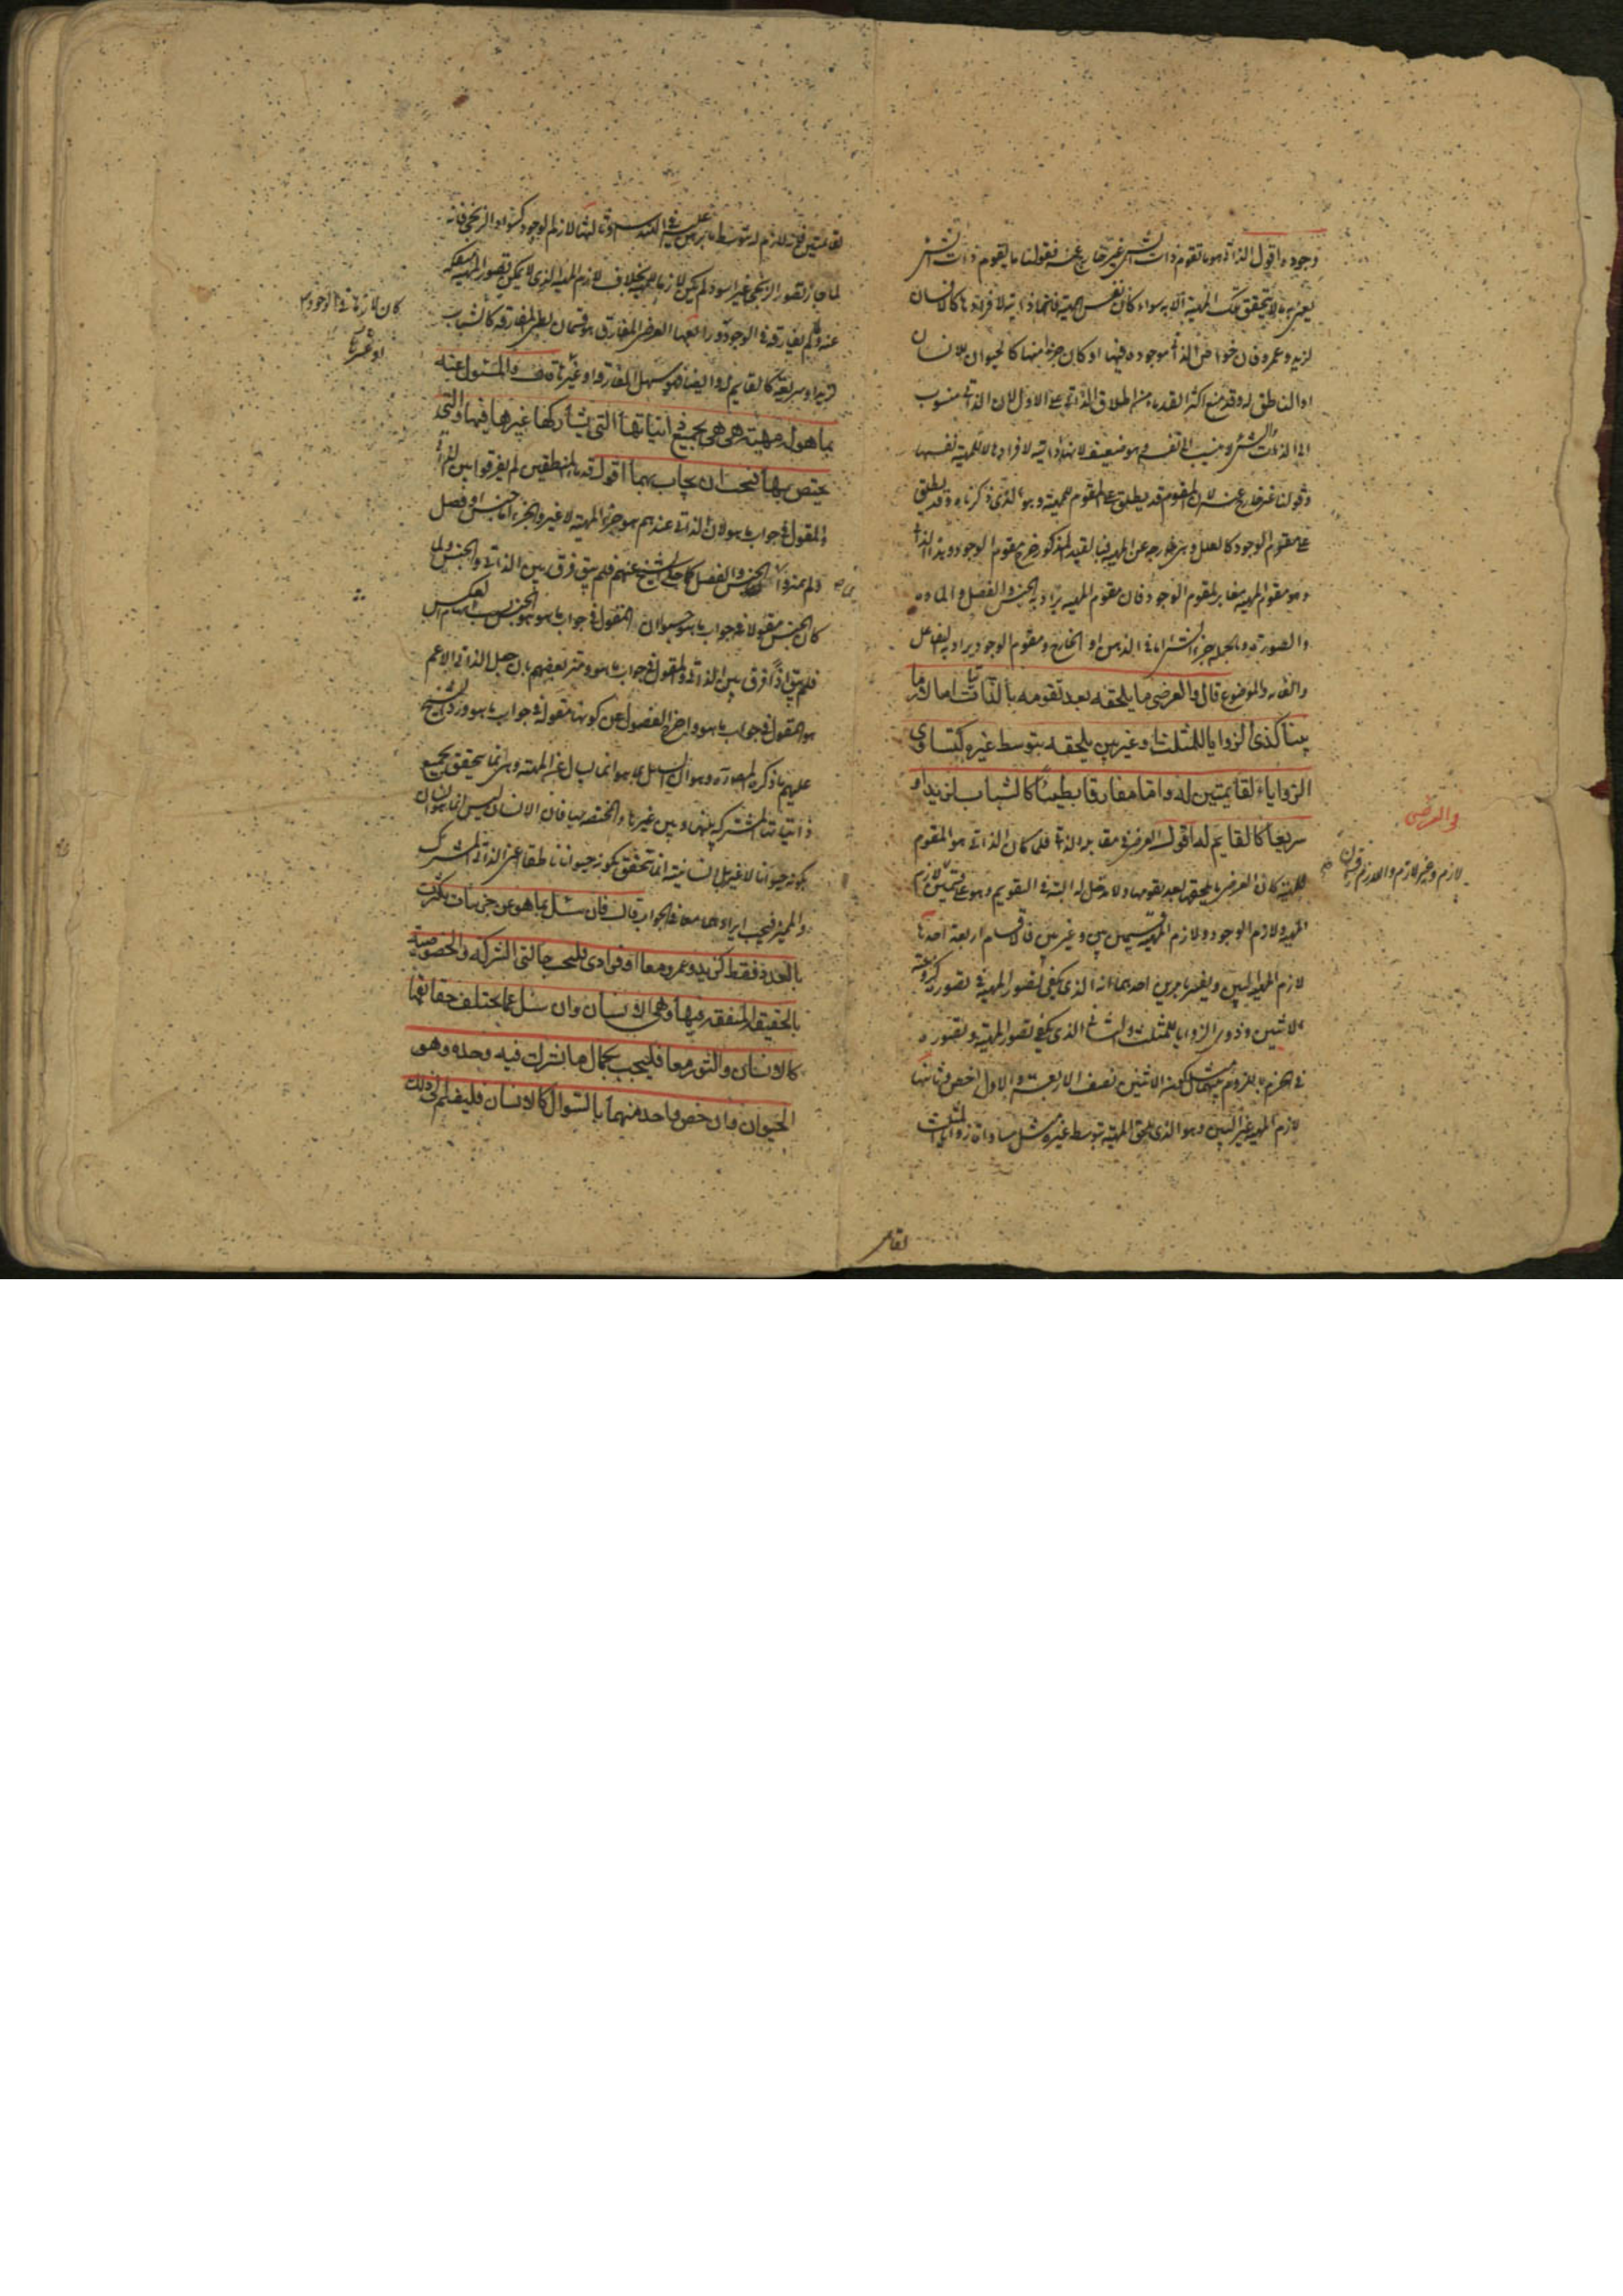 وجوده اقول الذاتي هو ما تقوم ذات الشي غير خارج عنه فقولنا ما يقوم ذات الشي
يعني به ما لا يتحقق تلك المهية الا به سواء كان نفس المهية فانها ذاتية لافرادها كالانسان
لزيد وعمرو فان خواص الذاتي موجودة فيها او كان جزءا منها كالحيوان للانسان
او الناطق له وقد منع اكثر القدماء من اطلاق الذاتي على الاول لان الذاتي منسوب
الى الذات والشي لا ينسب الى نفسه وهو ضعيف لانها ذاتية لافرادها لا للمهية نفسها
وقولنا غير خارج عنه لان المقوم قد يطلق على المقوم للمهية وهو الذي ذكرناه وقد يطلق
على مقوم الوجود كالعلل وهي خارجة عن المهية فبالقيد المذكور خرج مقوم الوجود وهذا الذاتي
وهو مقوم المهية مغاير لمقوم الوجود فان مقوم المهية يراد به الجنس والفصل والمادة
والصورة وبالجملة جزء الشي اما في الذهن او الخارج ومقوم الوجود يراد به الفاعل
والغاية والموضوع قال والعرضي ما يلحقه بعد تقومه بالذاتيات اما لازما
بينا كذي الزوايا للمثلث او غير بين يلحقه بتوسط غيره كتساوي
الزوايا لقائمتين له واما مفارقا بطيئا كالشباب لزيد او
سريعا كالقايم له اقول العرضي في مقابلة الذاتي فلما كان الذاتي هو المقوم
للمهية كان العرضي ما يلحقها بعد تقومها ولا مدخل له البتة في التقويم وهو على قسمين لازم
المهية ولازم الوجود ولازم المهية قسمين بين وغير بين فالاقسام اربعة احدها
لازم المهية البين ويفسر بامرين احدهما انه الذي يكفي تصور المهية في تصوره كزوجية
الاثنين وذوي الزوايا للمثلث والثاني الذي يكفي تصور المهية وتصوره
في الجزم باللزوم بينهما مثل كون الاثنين نصف الاربعة والاول اخص وثانيها
لازم المهية غير البين وهو الذي يلحق المهية بتوسط غيره مثل مساواة زوايا المثلث
والعرضي
لازم وغير لازم واللازم
لقائمتين
لقائمتين فانه لازم له بتوسط ما برهن عليه في الهندسة وثالثها لازم الوجود كسواد الزنجي فانه
لما جاز تصور الزنجي غير اسود لم يكن لازما للمهية بخلاف لازم المهية الذي لا يمكن تصور المهية منفكة
عنه ولم يفارقه في الوجود ورابعها العرضي المفارق وهو قسمان بطي المفارقة كالشباب
لزيد او سريعة كالقايم له وايضا فهو سهل المفارقة او غيره قال والمسئول عنه
بما هو له مهية هي هي بجميع ذاتياتها التي يشاركها غيرها فيها والتي
يختص بها فيجب ان يجاب بهما اقول قدماء المنطقيين لم يفرقوا بين الذاتي
والمقول في جواب ما هو لان الذاتي عندهم هو جزء المهية لا غير والجزء اما جنس او فصل
ولم يميزوا بين الجنس والفصل كما حكى الشيخ عنهم فلم يبق فرق بين الذاتي والجنس ولما
كان الجنس مقولا في جواب ما هو حسبوا ان المقول في جواب ما هو هو الجنس بسبب ايهام العكس
فلم يبق اذا فرق بين الذاتي والمقول في جواب ما هو وميز بعضهم بان جعل الذاتي الاعم
هو المقول في جواب ما هو واخرج الفصول عن كونها مقولة في جواب ما هو ورد الشيخ
عليهم بما ذكره المص وهو ان السائل بما هو انما يسال عن المهية وهي انما يتحقق بجميع
ذاتياتها المشتركة بينها وبين غيرها والمختصة بها فان الانسان ليس انسانا
بكونه حيوانا لا غير بل انسانيته انما تتحقق بكونه حيوانا ناطقا اعني الذاتي المشترك
والمميز فيجب ايرادهما معا في الجواب قال فان سئل بما هو عن جزئيات تكثرت
بالعدد فقط كزيد وعمرو معا او فرادى فليجب حالتي الشركة والخصوصية
بالحقيقة المتفقة فيها وهي الانسان وان سئل عما يختلف حقائقها
كالانسان والثور معا فليجب بكمال ما اشتركت فيه وحده وهو
الحيوان وان خص واحد منهما بالسوال كالانسان فليضف الى ذلك
كان لازما في الوجود
او عسرها